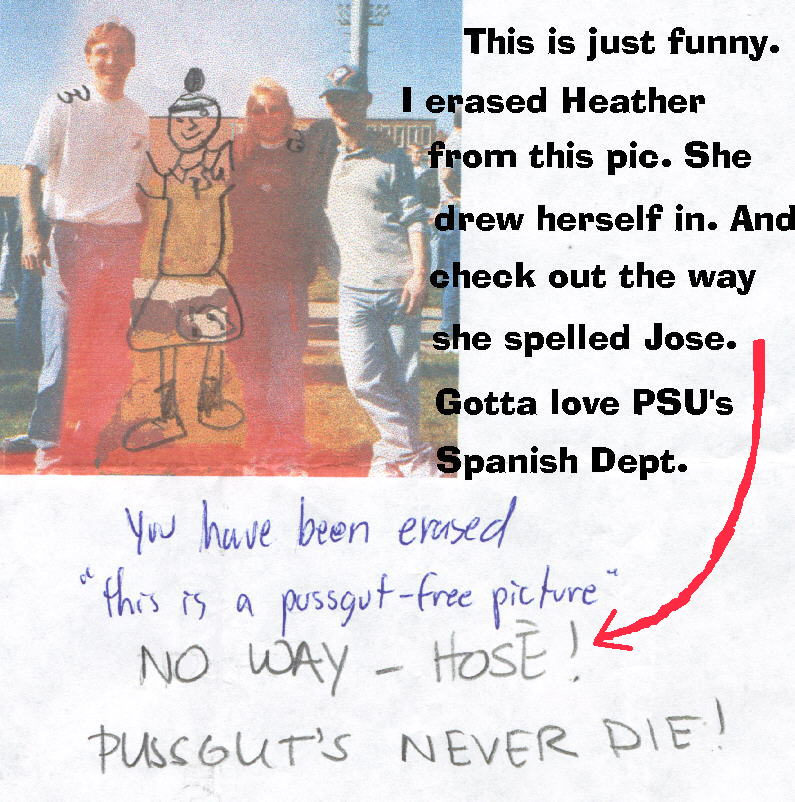 This is just funny.
I erased Heather
from this pic. She
drew herself in. And
check out the way
she spelled Jose.
Gotta love PSU's
Spanish Dept.
PSU
You have been erased
"this is a pussgut-free picture"
NO WAY - HOSÉ!
PUSSGUT'S NEVER DIE!